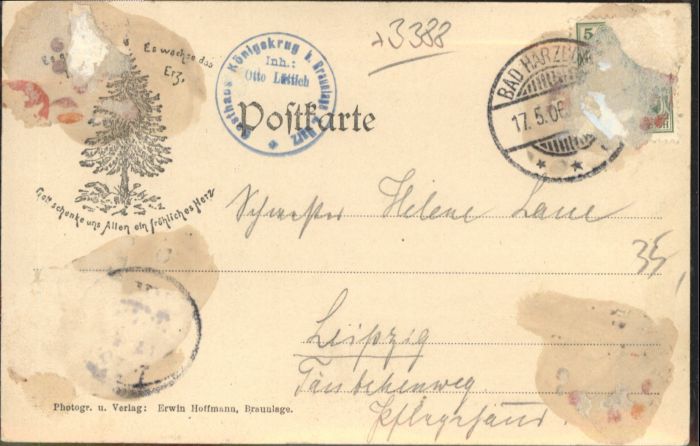 Es
Es wachse das
Erz,
Gott schenke uns Allen ein fröhliches Herz
Gasthaus Königskrug b. Braunlage i. Harz
Inh.:
Otto Lüttich
+3388
Postkarte
BAD HARZBU
17.5.06
5
Schwester Helene Laue
35,
Leipzig
Täubchenweg
Pflegehaus
Photogr. u. Verlag: Erwin Hoffmann, Braunlage.